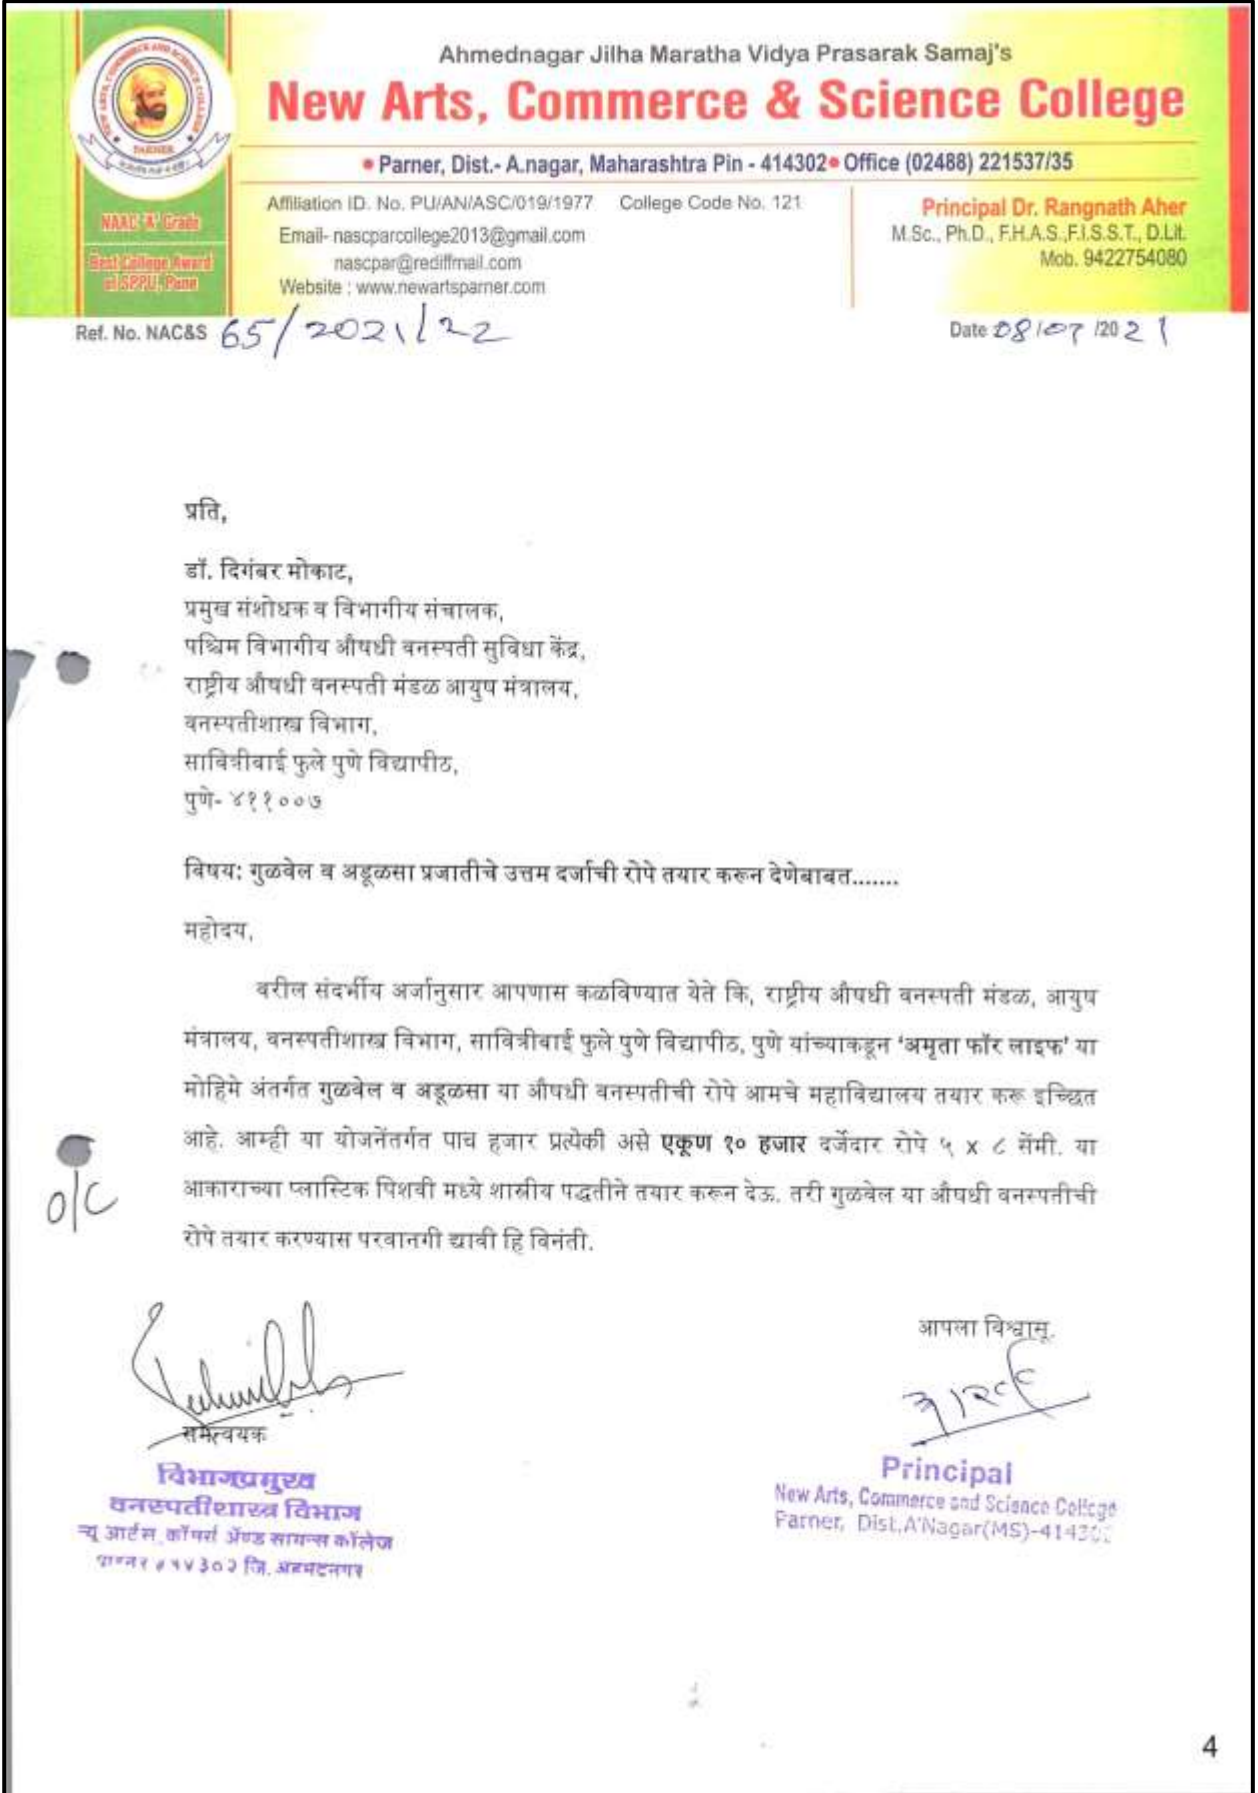 NEW ARTS, COMMERCE AND SCIENCE COLLEGE
PARNER
NAAC 'A' Grade
Best College Award
of SPPU, Pune
Ahmednagar Jilha Maratha Vidya Prasarak Samaj's
New Arts, Commerce & Science College
• Parner, Dist.- A.nagar, Maharashtra Pin - 414302• Office (02488) 221537/35
Affiliation ID. No. PU/AN/ASC/019/1977 College Code No. 121
Email- nascparcollege2013@gmail.com
nascpar@rediffmail.com
Website : www.newartsparner.com
Principal Dr. Rangnath Aher
M.Sc., Ph.D., F.H.A.S.,F.I.S.S.T., D.Lit.
Mob. 9422754080
Ref. No. NAC&S 65/2021/22
Date 08/07/2021
प्रति,
डॉ. दिगंबर मोकाट,
प्रमुख संशोधक व विभागीय संचालक,
पश्चिम विभागीय औषधी वनस्पती सुविधा केंद्र,
राष्ट्रीय औषधी वनस्पती मंडळ आयुष मंत्रालय,
वनस्पतीशास्त्र विभाग,
सावित्रीबाई फुले पुणे विद्यापीठ,
पुणे- ४११००७
विषय: गुळवेल व अडूळसा प्रजातीचे उत्तम दर्जाची रोपे तयार करून देणेबाबत.......
महोदय,
वरील संदर्भीय अर्जानुसार आपणास कळविण्यात येते कि, राष्ट्रीय औषधी वनस्पती मंडळ, आयुष
मंत्रालय, वनस्पतीशास्त्र विभाग, सावित्रीबाई फुले पुणे विद्यापीठ, पुणे यांच्याकडून 'अमृता फॉर लाइफ' या
मोहिमे अंतर्गत गुळवेल व अडूळसा या औषधी वनस्पतीची रोपे आमचे महाविद्यालय तयार करू इच्छित
आहे. आम्ही या योजनेंतर्गत पाच हजार प्रत्येकी असे एकूण १० हजार दर्जेदार रोपे ५ x ८ सेंमी. या
आकाराच्या प्लास्टिक पिशवी मध्ये शास्त्रीय पद्धतीने तयार करून देऊ. तरी गुळवेल या औषधी वनस्पतीची
रोपे तयार करण्यास परवानगी द्यावी हि विनंती.
O/C
आपला विश्वासू.
समन्वयक
विभागप्रमुख
वनस्पतीशास्त्र विभाग
न्यू आर्टस्, कॉमर्स ॲण्ड सायन्स कॉलेज
पारनेर ४१४३०२ जि. अहमदनगर
Principal
New Arts, Commerce and Science College
Parner, Dist.A'Nagar(MS)-414302
4